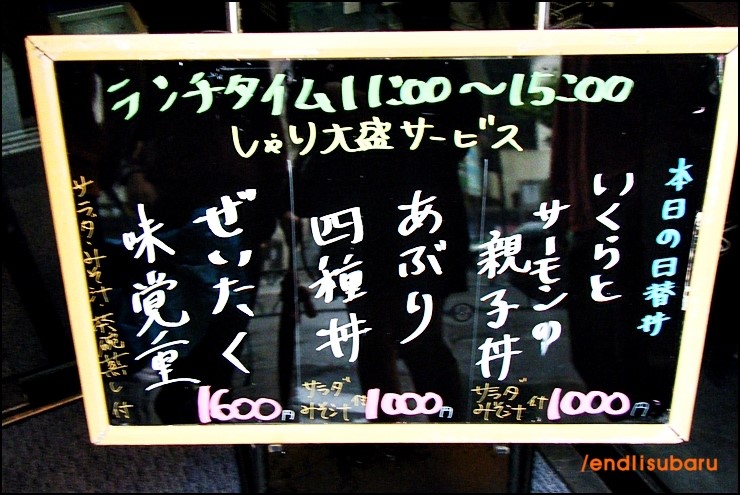 ランチタイム11:00〜15:00
しゃり大盛サービス
本日の日替丼
いくらと
サーモンの
親子丼
サラダ
みそ汁
付
1000円
あぶり
四種丼
サラダ
みそ汁
付
1000円
ぜいたく
味覚重
サラダ・みそ汁 茶碗蒸し付
1600円
/endlisubaru